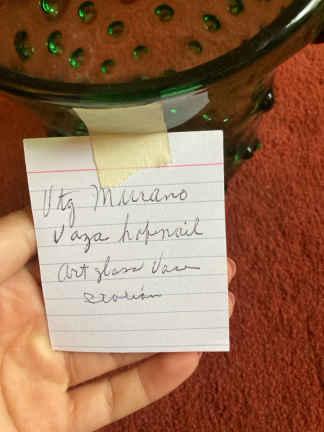 Vtg Murano
Vaza hobnail
art glass Vase